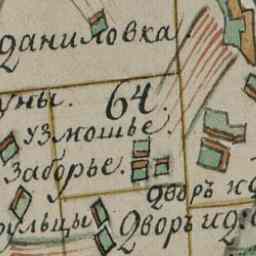 Даниловка.
уны. 64.
узмошье.
Заборье.
Дворъ
рульцы Дворъ